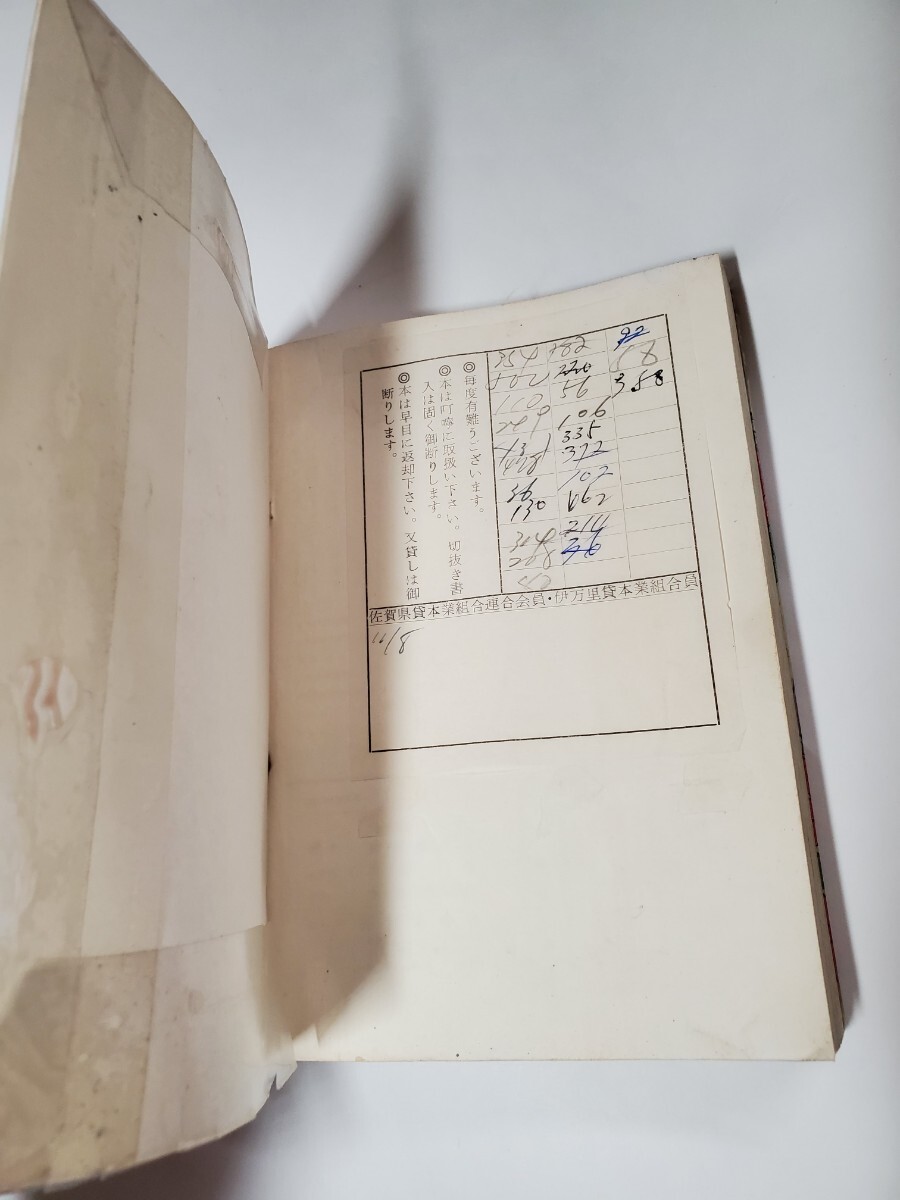 ◎毎度有難うございます。
◎本は叮嚀に取扱い下さい。切抜き書
入は固く御断りします。
◎本は早目に返却下さい。又貸しは御
断りします。
354
102
110
249
131
448
36
130
304
268
182
220
56
106
335
372
102
162
214
36
92
68
358
佐賀県貸本業組合連合会員・伊万里貸本業組合員
11/8